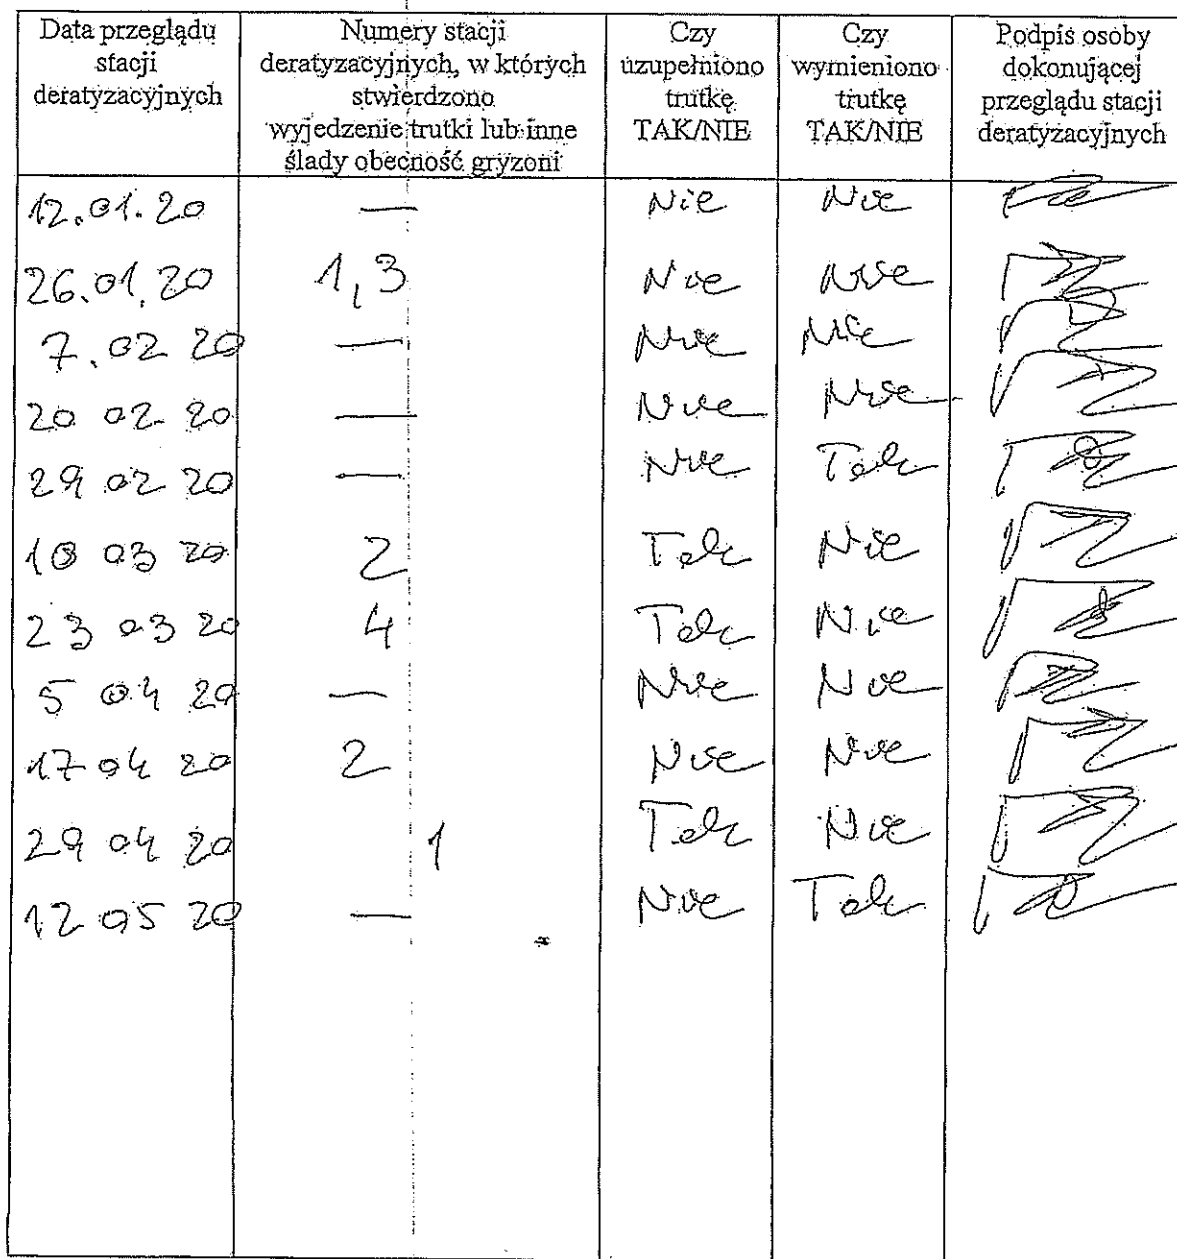 Data przeglądu stacji deratyzacyjnych
Numery stacji deratyzacyjnych, w których stwierdzono wyjedzenie trutki lub inne ślady obecność gryzoni
Czy uzupełniono trutkę TAK/NIE
Czy wymieniono trutkę TAK/NIE
Podpis osoby dokonującej przeglądu stacji deratyzacyjnych
12.01.20 — Nie Nie
26.01.20 1,3 Nie Nie
7.02 20 — Nie Nie
20 02 20 — Nie Nie
29 02 20 — Nie Tak
10 03 20 2 Tak Nie
23 03 20 4 Tak Nie
5 04 20 — Nie Nie
17 04 20 2 Nie Nie
29 04 20 1 Tak Nie
12 05 20 — Nie Tak